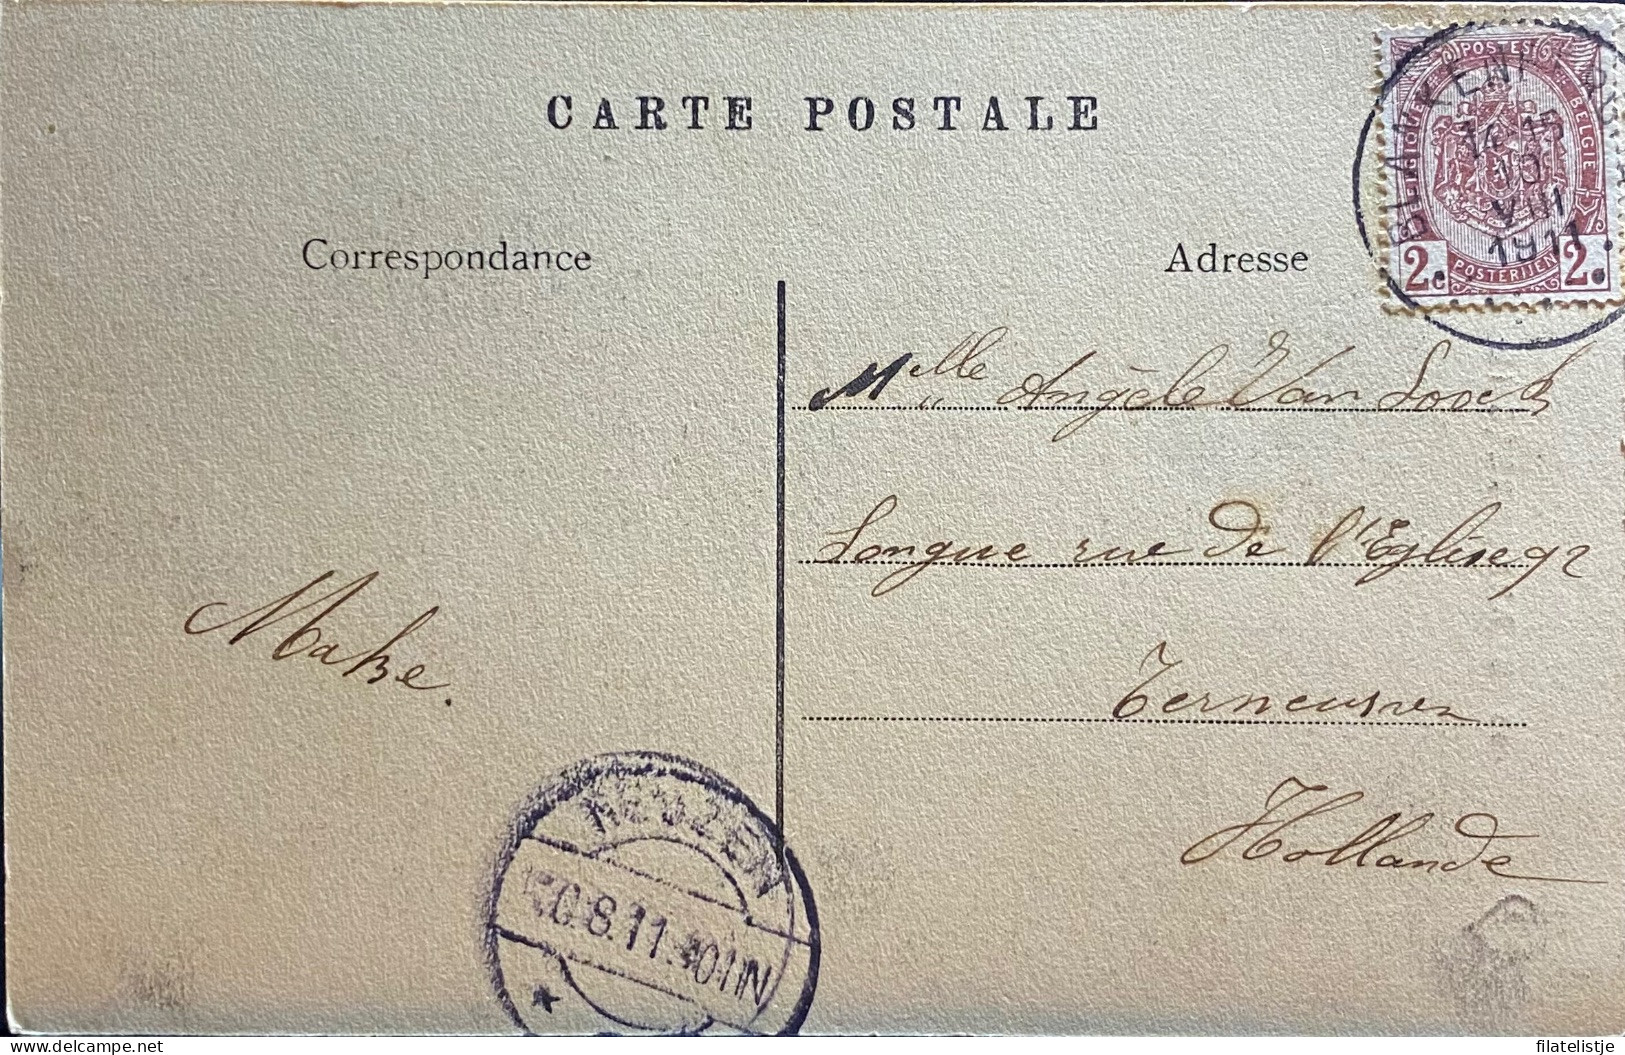 CARTE POSTALE
Correspondance
Adresse
POSTES
BELGIQUE BELGIE
2c POSTERIJEN 2c
BLANKENBERGHE
14-15
10
VIII
1911
Mlle Angèle Van Loock
Longue rue de l'Eglise 92
Terneuzen
Hollande
Make.
NEUZEN
8.11.
filatelistje
delcampe.net